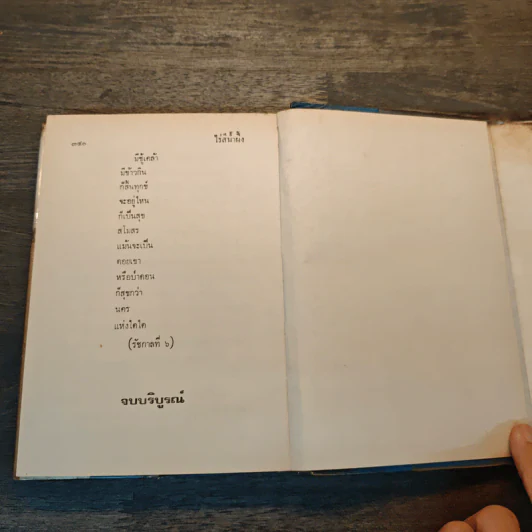 ๓๕๐ ไร่สีน้ำผึ้ง
มีชู้เคล้า
มีข้าวกิน
ก็สิ้นทุกข์
จะอยู่ไหน
ก็เป็นสุข
สโมสร
แม้นจะเป็น
ดอยเขา
หรือป่าดอน
ก็สุขกว่า
นคร
แห่งใดใด
(รัชกาลที่ ๖)
จบบริบูรณ์